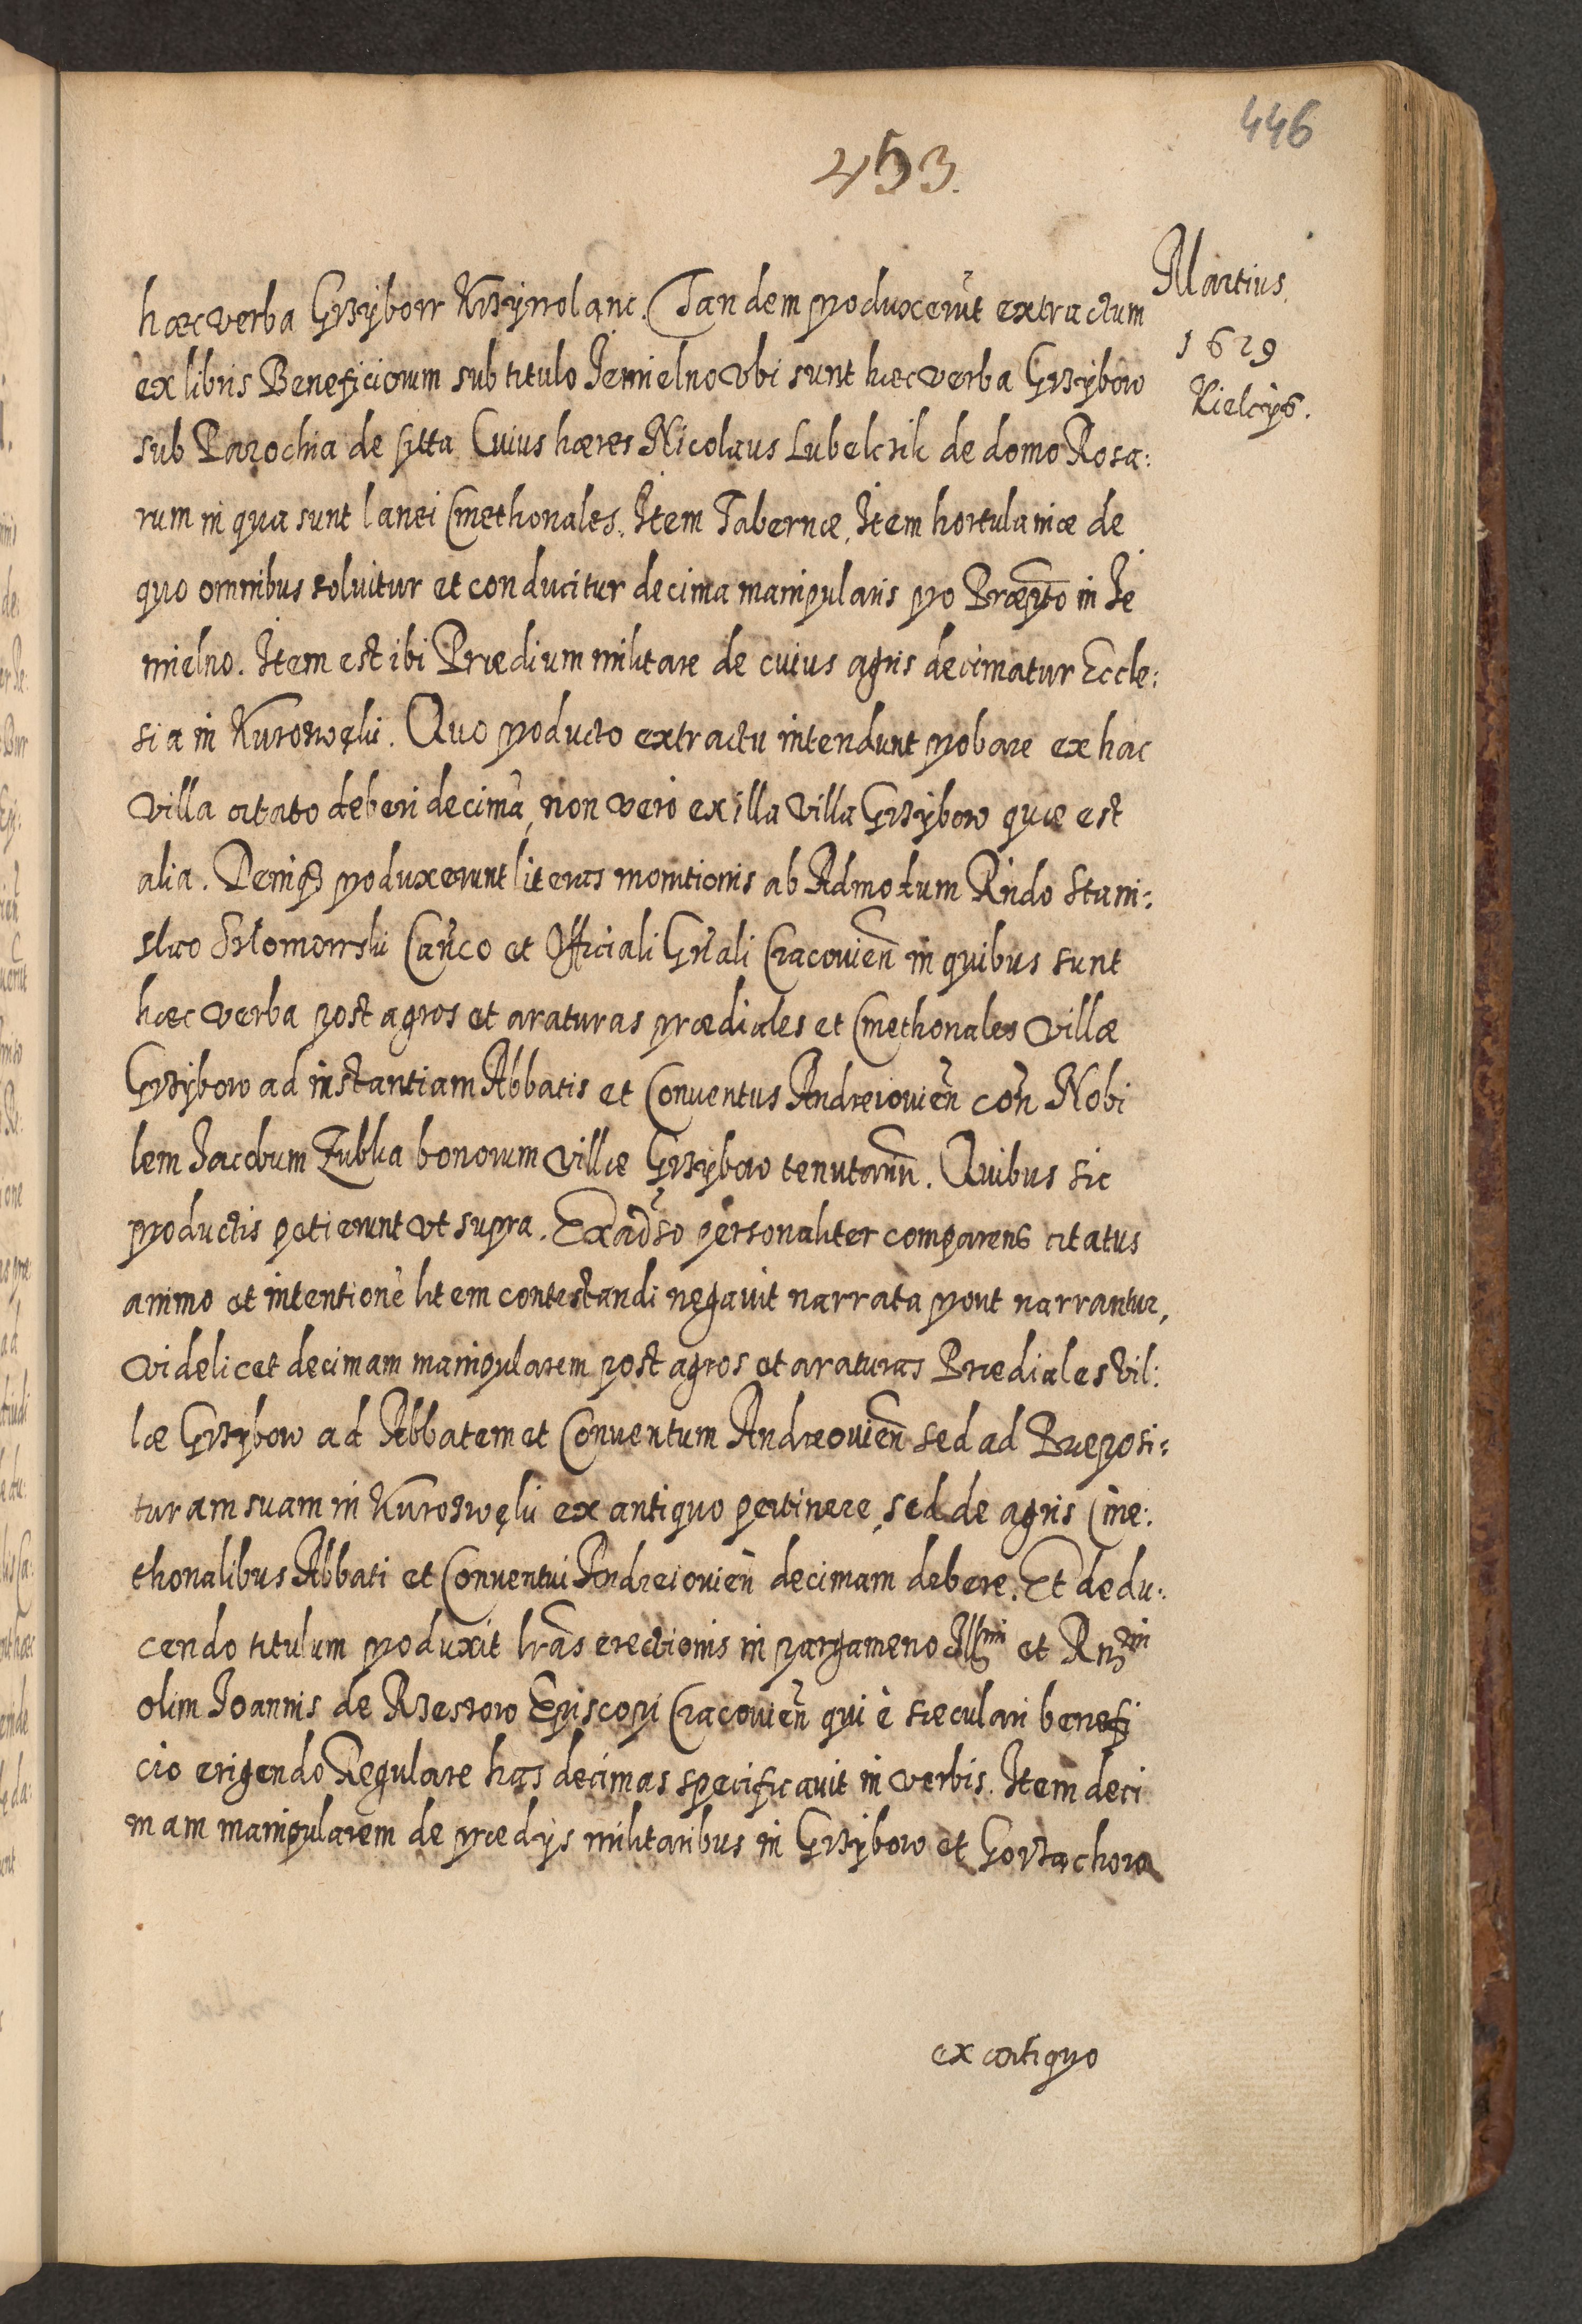 446
453.
Martius.
1629
Kielcys.
hæc verba Grzÿborr Krzÿrrolanc. Tandem produxerūt extractum
ex libris Beneficiorum sub titulo Jemielno vbi sunt hæc verba Grzÿbow
sub Parochia de sitta Cuius hæres Nicolaus Lubelczik de domo Rosa:
rum in qua sunt lanei Cmethonales. Item Tabernæ, Item hortulaniæ de
quo omnibus soluitur et conducitur decima manipularis pro Præpto in Je
mielno. Item est ibi Prædium militare de cuius agris decimatur Eccle:
sia in Kurozwęki. Quo producto extractu intendunt probare ex hac
villa citato deberi decimā, non vero ex illa villa Grzÿbow quæ est
alia. Deniq3 produxerunt literas monitionis ab Admodum Rndo Stani:
slao Szłomorrski Canco et Officiali Gnali Cracouien in quibus sunt
hæc verba post agros et araturas prædiales et Cmethonales villæ
Grzÿbow ad instantiam Abbatis et Conuentus Andreiouien con Nobi
lem Jacobum Zubka bonorum villæ Grzÿbow tenutarium. Quibus sic
productis petierunt vt supra. Ex aduso personaliter comparens citatus
animo et intentione litem contestandi negauit narrata prout narrantur,
videlicet decimam manipularem post agros et araturas Prædiales vil:
læ Grzÿbow ad Abbatem et Conuentum Andreouien sed ad Præposi:
turam suam in Kurozwęki ex antiquo pertinere, sed de agris Cme:
thonalibus Abbati et Conuentui Andreiouien decimam debere. Et dedu:
cendo titulum produxit lras erectionis in pargameno Illmi et Rndmi
olim Joannis de Rzeszow Episcopi Cracouien qui è sæculari benefi
cio erigendo Regulare has decimas specificauit in verbis. Item deci
mam manipularem de prædijs militaribus in Grzÿbow et Gorzachow
ex antiquo